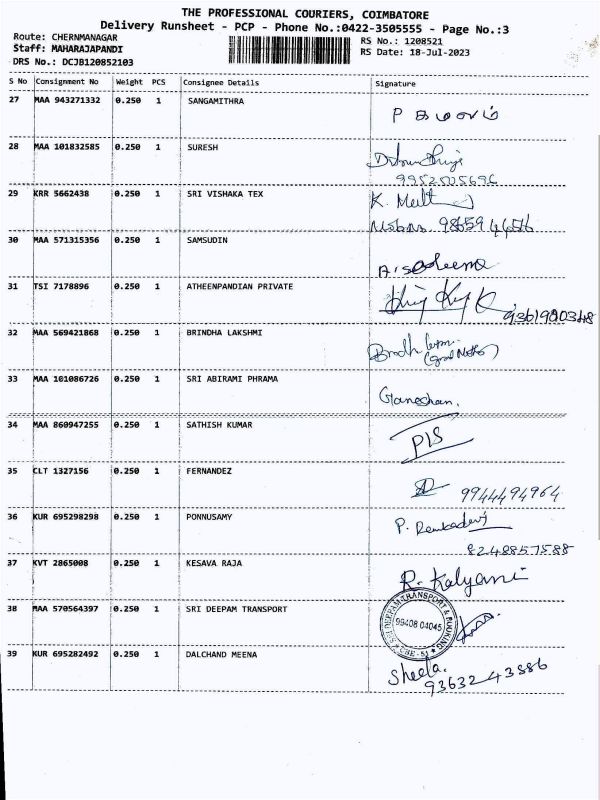 THE PROFESSIONAL COURIERS, COIMBATORE
Delivery Runsheet - PCP - Phone No.:0422-3505555 - Page No.:3
Route: CHERNMANAGAR
Staff: MAHARAJAPANDI
DRS No.: DCJB120852103
RS No.: 1208521
RS Date: 18-Jul-2023
S No Consignment No Weight PCS Consignee Details Signature
27 MAA 943271332 0.250 1 SANGAMITHRA
28 MAA 101832585 0.250 1 SURESH
29 KRR 5662438 0.250 1 SRI VISHAKA TEX K.
30 MAA 571315356 0.250 1 SAMSUDIN
31 TSI 7178896 0.250 1 ATHEENPANDIAN PRIVATE
32 MAA 569421868 0.250 1 BRINDHA LAKSHMI
33 MAA 101086726 0.250 1 SRI ABIRAMI PHRAMA Ganeshan.
34 MAA 860947255 0.250 1 SATHISH KUMAR P/S
35 CLT 1327156 0.250 1 FERNANDEZ 9944494964
36 KUR 695298298 0.250 1 PONNUSAMY P.
8248857588
37 KVT 2865008 0.250 1 KESAVA RAJA R. Kalyani
38 MAA 570564397 0.250 1 SRI DEEPAM TRANSPORT SRI DEEPAM TRANSPORT & BOOKING 99408 04045 CBE - 51
39 KUR 695282492 0.250 1 DALCHAND MEENA Sheela.
93632 43886